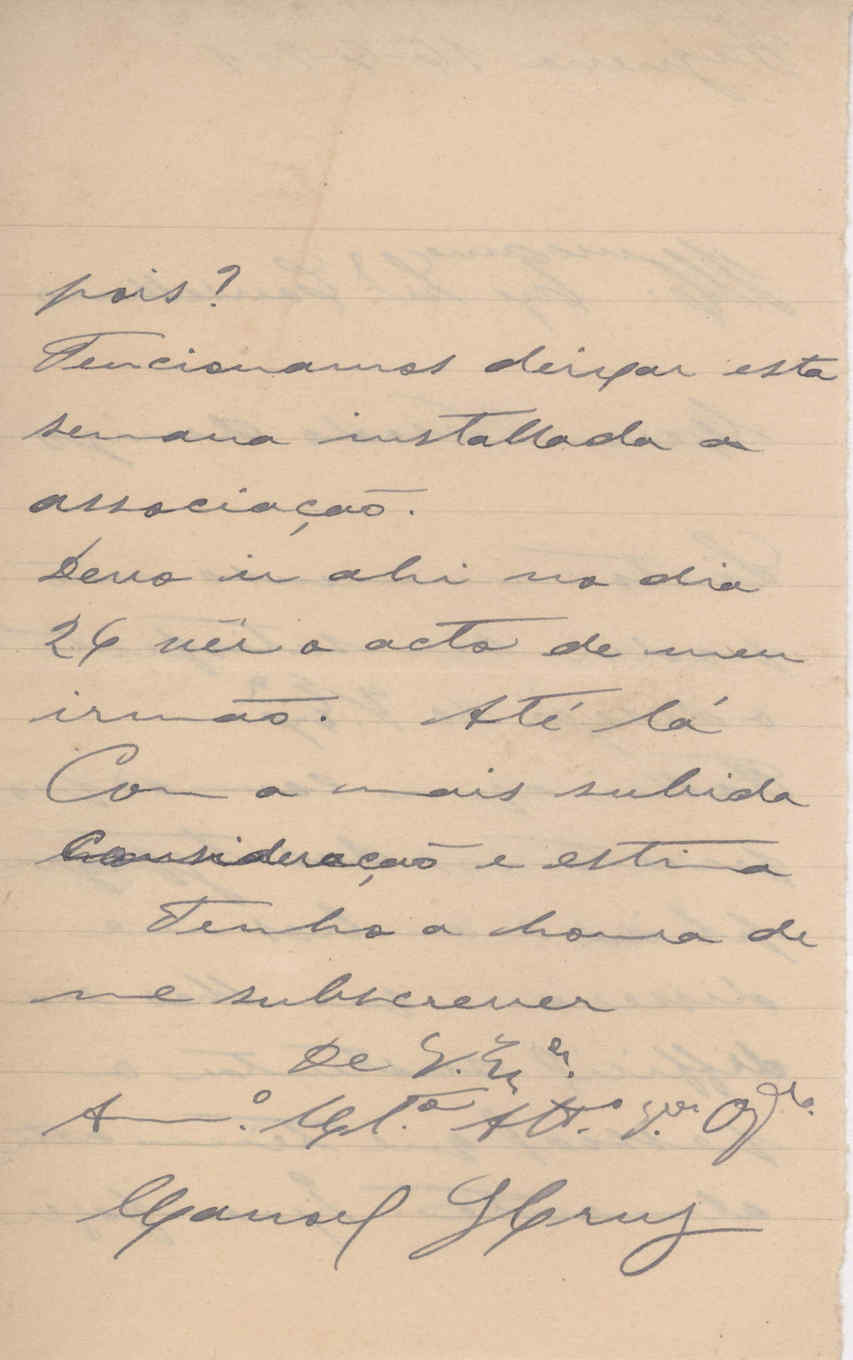 pois?
Tencionamos deixar esta
semana installada a
associação.
Devo ir ahi no dia
26 vêr o acto de meu
irmão. Até lá
Com a mais subida
Consideração e estima
Tenho a honra de
me subscrever
De V. Exª.
Am.º Att.º
Manoel Cruz